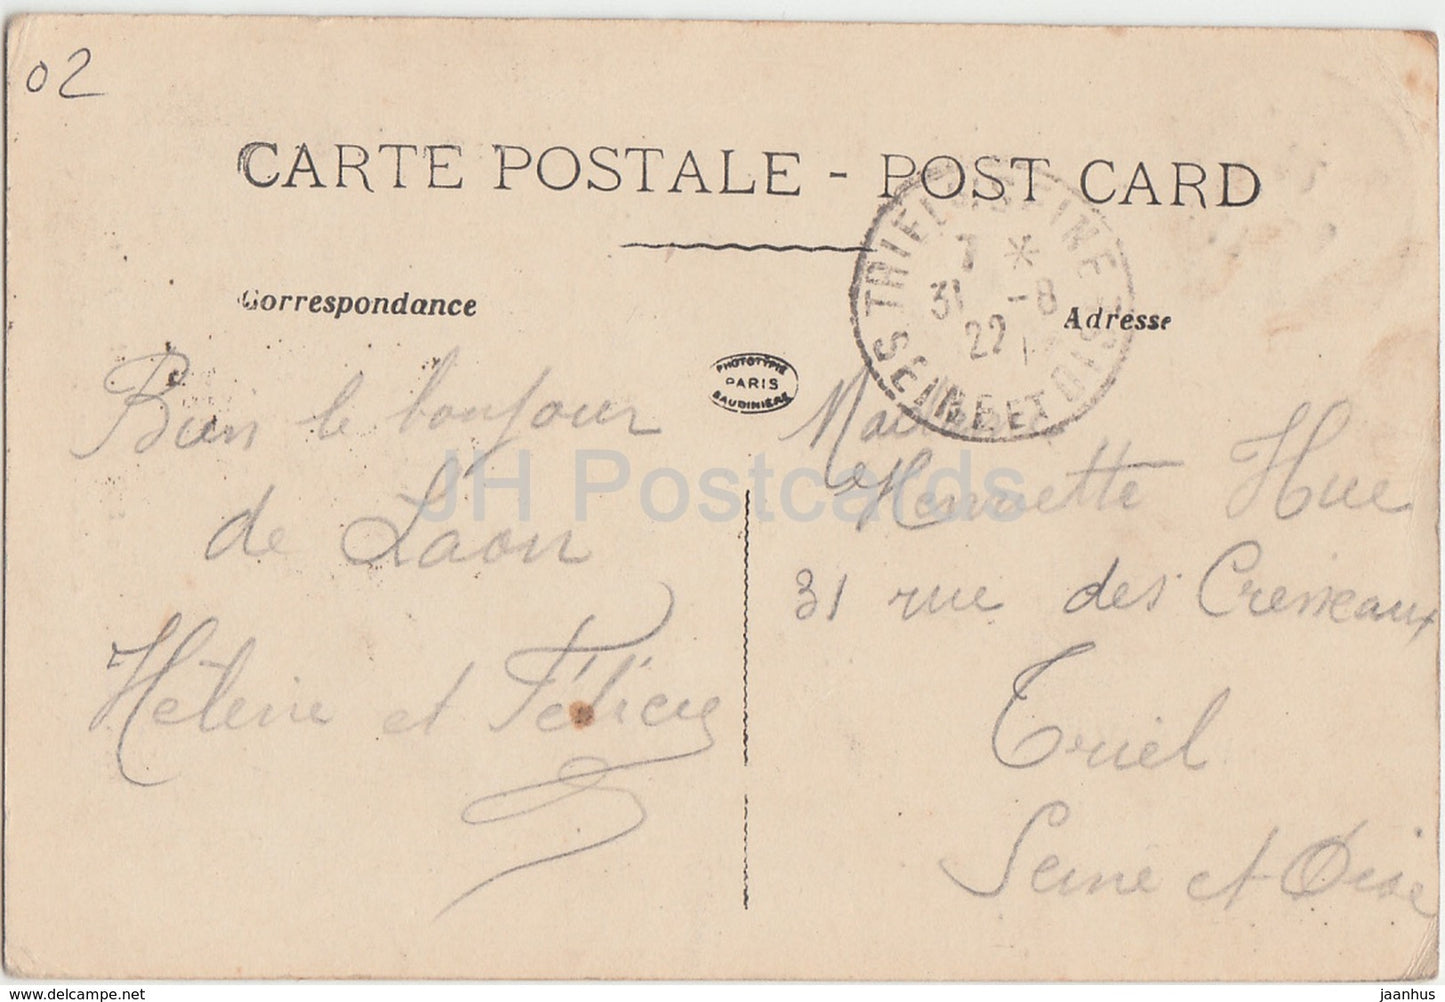 02
CARTE POSTALE - POST CARD
Correspondance
Adresse
TRIEL S SEINE
7 *
31 -8
22
SEINE ET OISE
PHOTOTYPIE
PARIS
BAUDINIÈRE
Bien le bonjour
de Laon
Hélène et
Henriette Hue
31 rue des
Triel
Seine et Oise
JH Postcards
www.delcampe.net
jaanhus